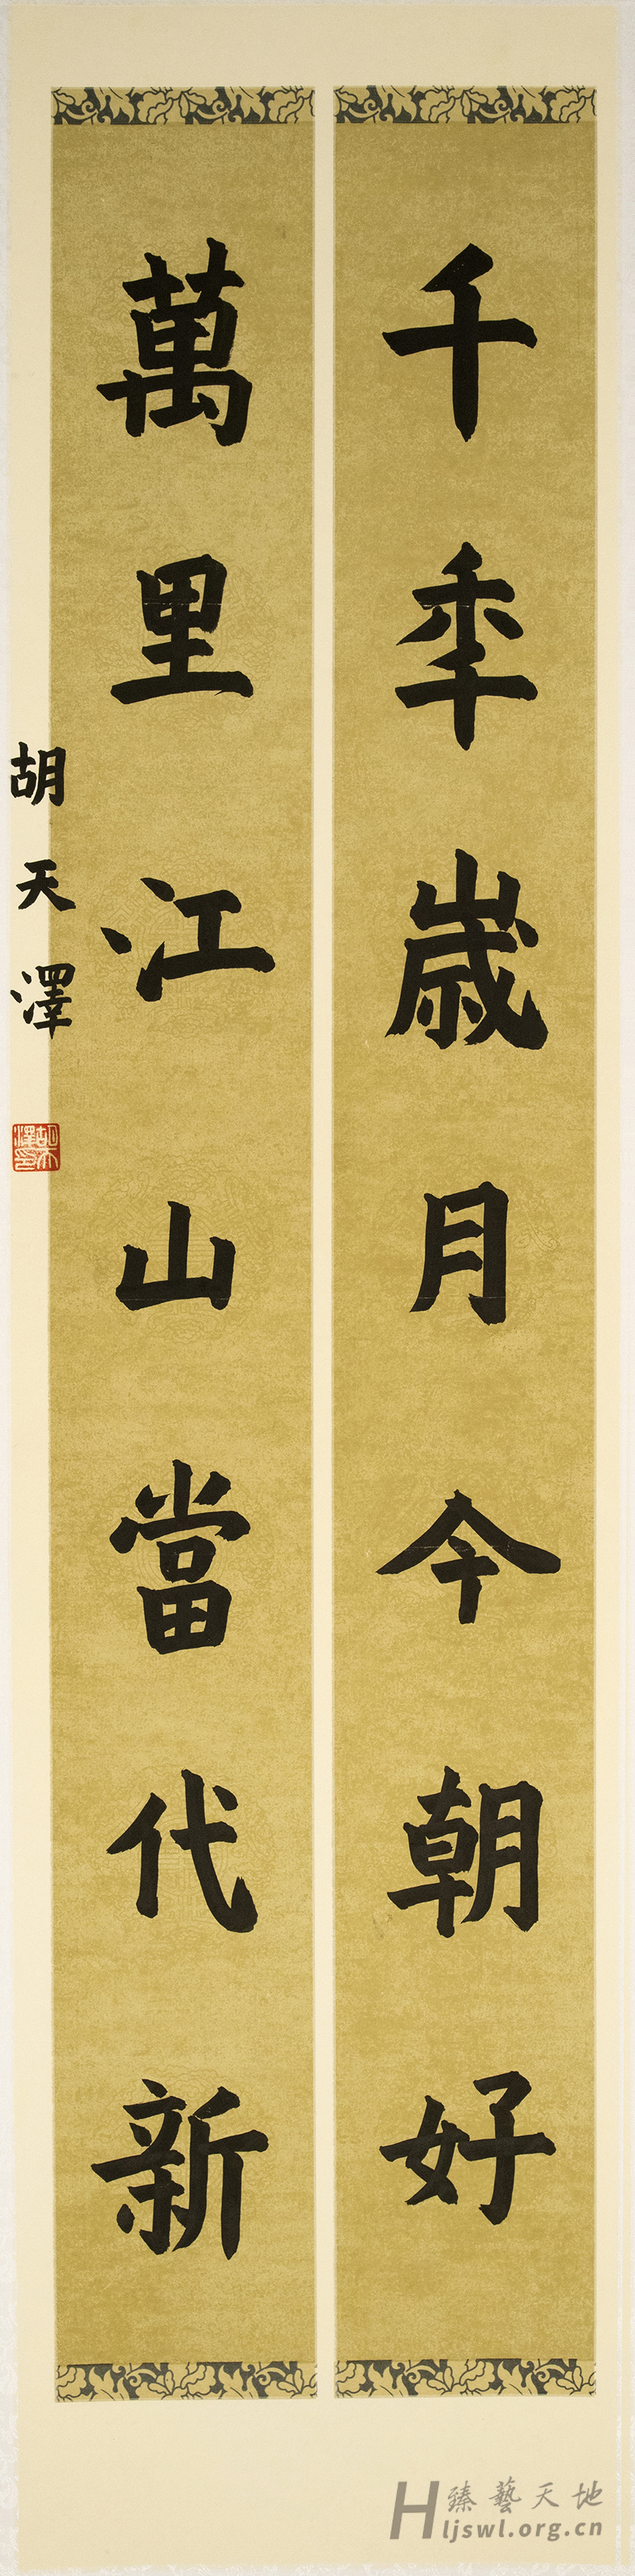 千秊歲月今朝好
萬里江山當代新
胡天澤
胡天澤印
H臻藝天地
ljswl.org.cn